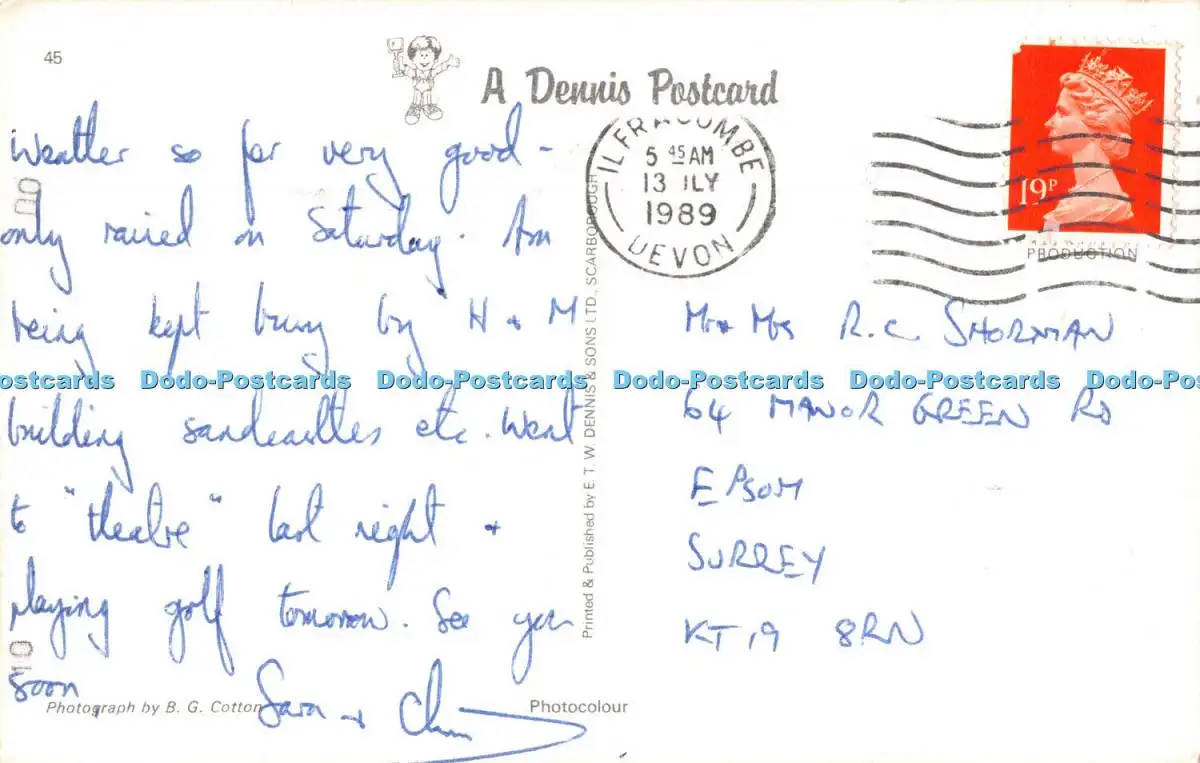 45
A Dennis Postcard
ILFRACOMBE
5 45 AM
13 JLY
1989
DEVON
19P
PRODUCTION
Weather so far very good -
only rained on Saturday. Am
being kept busy by H + M
building sandcastles etc. Went
to "theatre" last night +
playing golf tomorrow. See you
soon,
Sara + Chris
Mr + Mrs R.C. SHORMAN
64 MANOR GREEN RD
EPSOM
SURREY
KT19 8RN
Printed & Published by E. T. W. DENNIS & SONS LTD., SCARBOROUGH
Photograph by B. G. Cotton
Photocolour
Dodo-Postcards Dodo-Postcards Dodo-Postcards Dodo-Postcards Dodo-Postcards